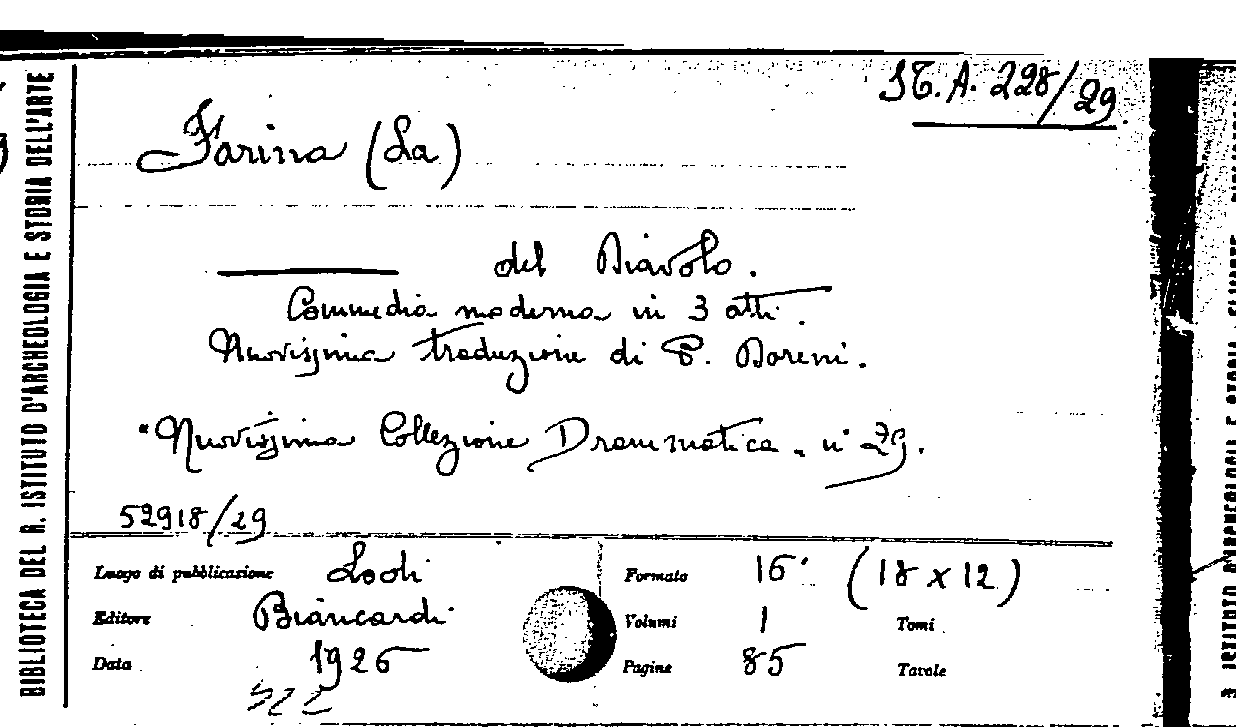 ST. A. 228/29
Farina (La)
del Diavolo.
Commedia moderna in 3 atti.
Nuovissima traduzione di P. Doreni.
"Nuovissima Collezione Drammatica. n° 29.
52918/29
Luogo di pubblicazione Lodi
Editore Biancardi
Data 1926
Formato 16° (18 x 12)
Volumi 1 Tomi
Pagine 85 Tavole
BIBLIOTECA DEL R. ISTITUTO D'ARCHEOLOGIA E STORIA DELL'ARTE